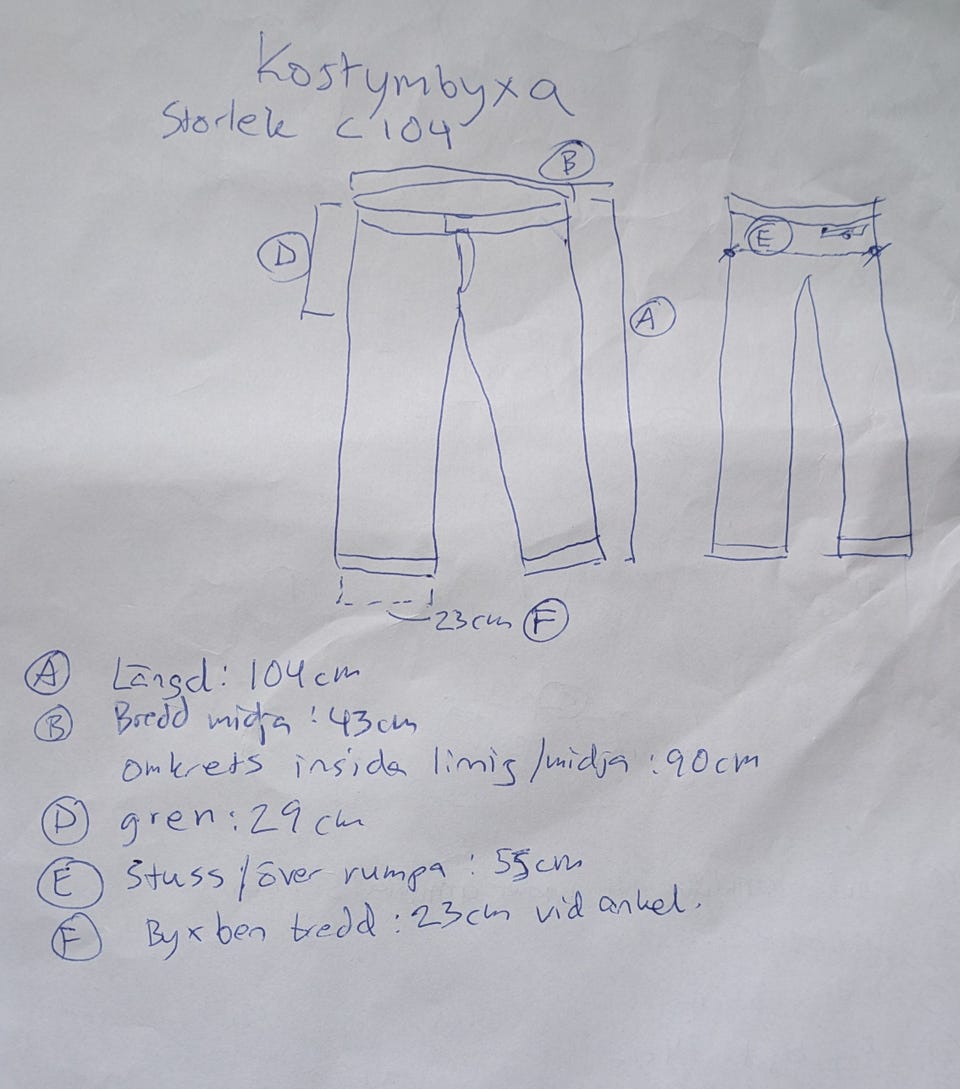 Kostymbyxa
Storlek C 104
B
D
E
A
23cm F
A Längd: 104cm
B Bredd midja: 43cm
omkrets insida linig/midja: 90cm
D gren: 29cm
E Stuss/över rumpa: 55cm
F Byxben bredd: 23cm vid ankel.